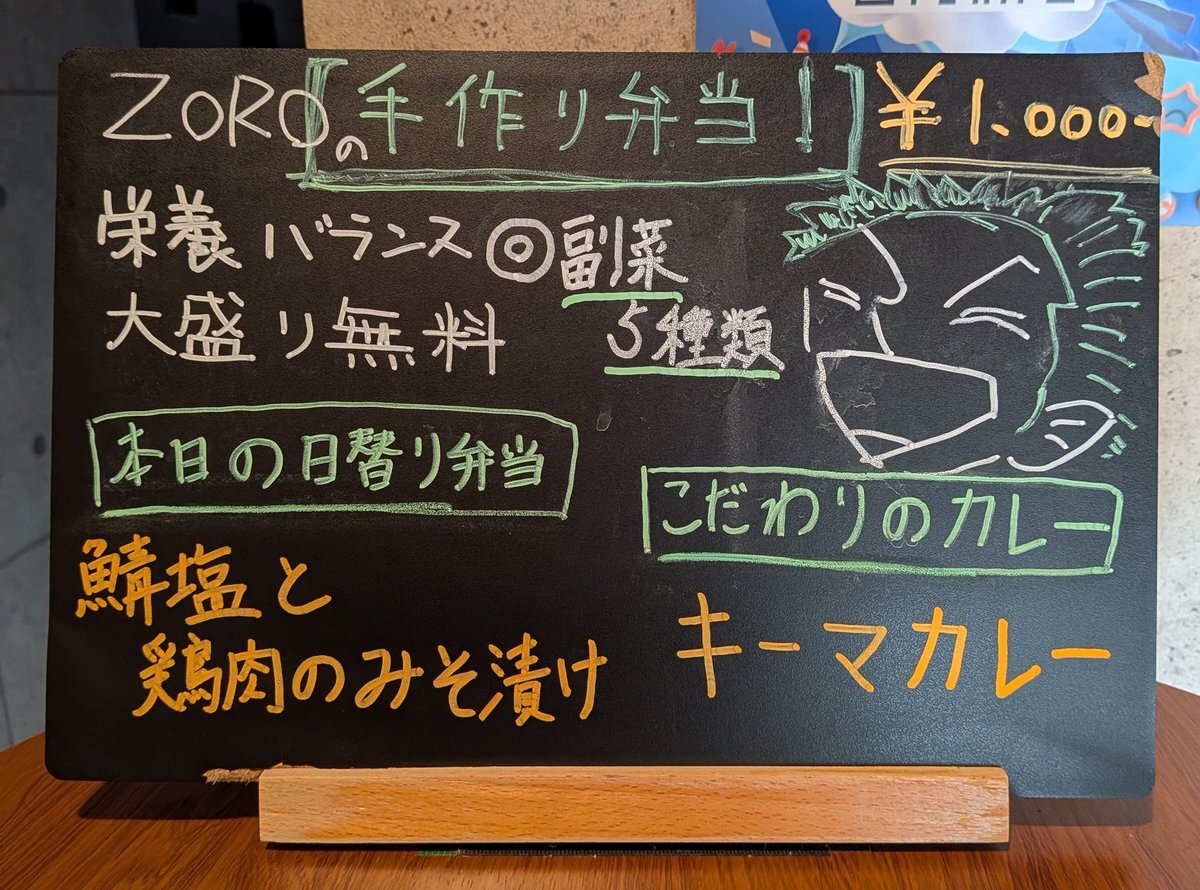 ZOROの手作り弁当！ ¥1.000-
栄養バランス◎副菜
大盛り無料 5種類
本日の日替り弁当
鯖塩と
鶏肉のみそ漬け
こだわりのカレー
キーマカレー